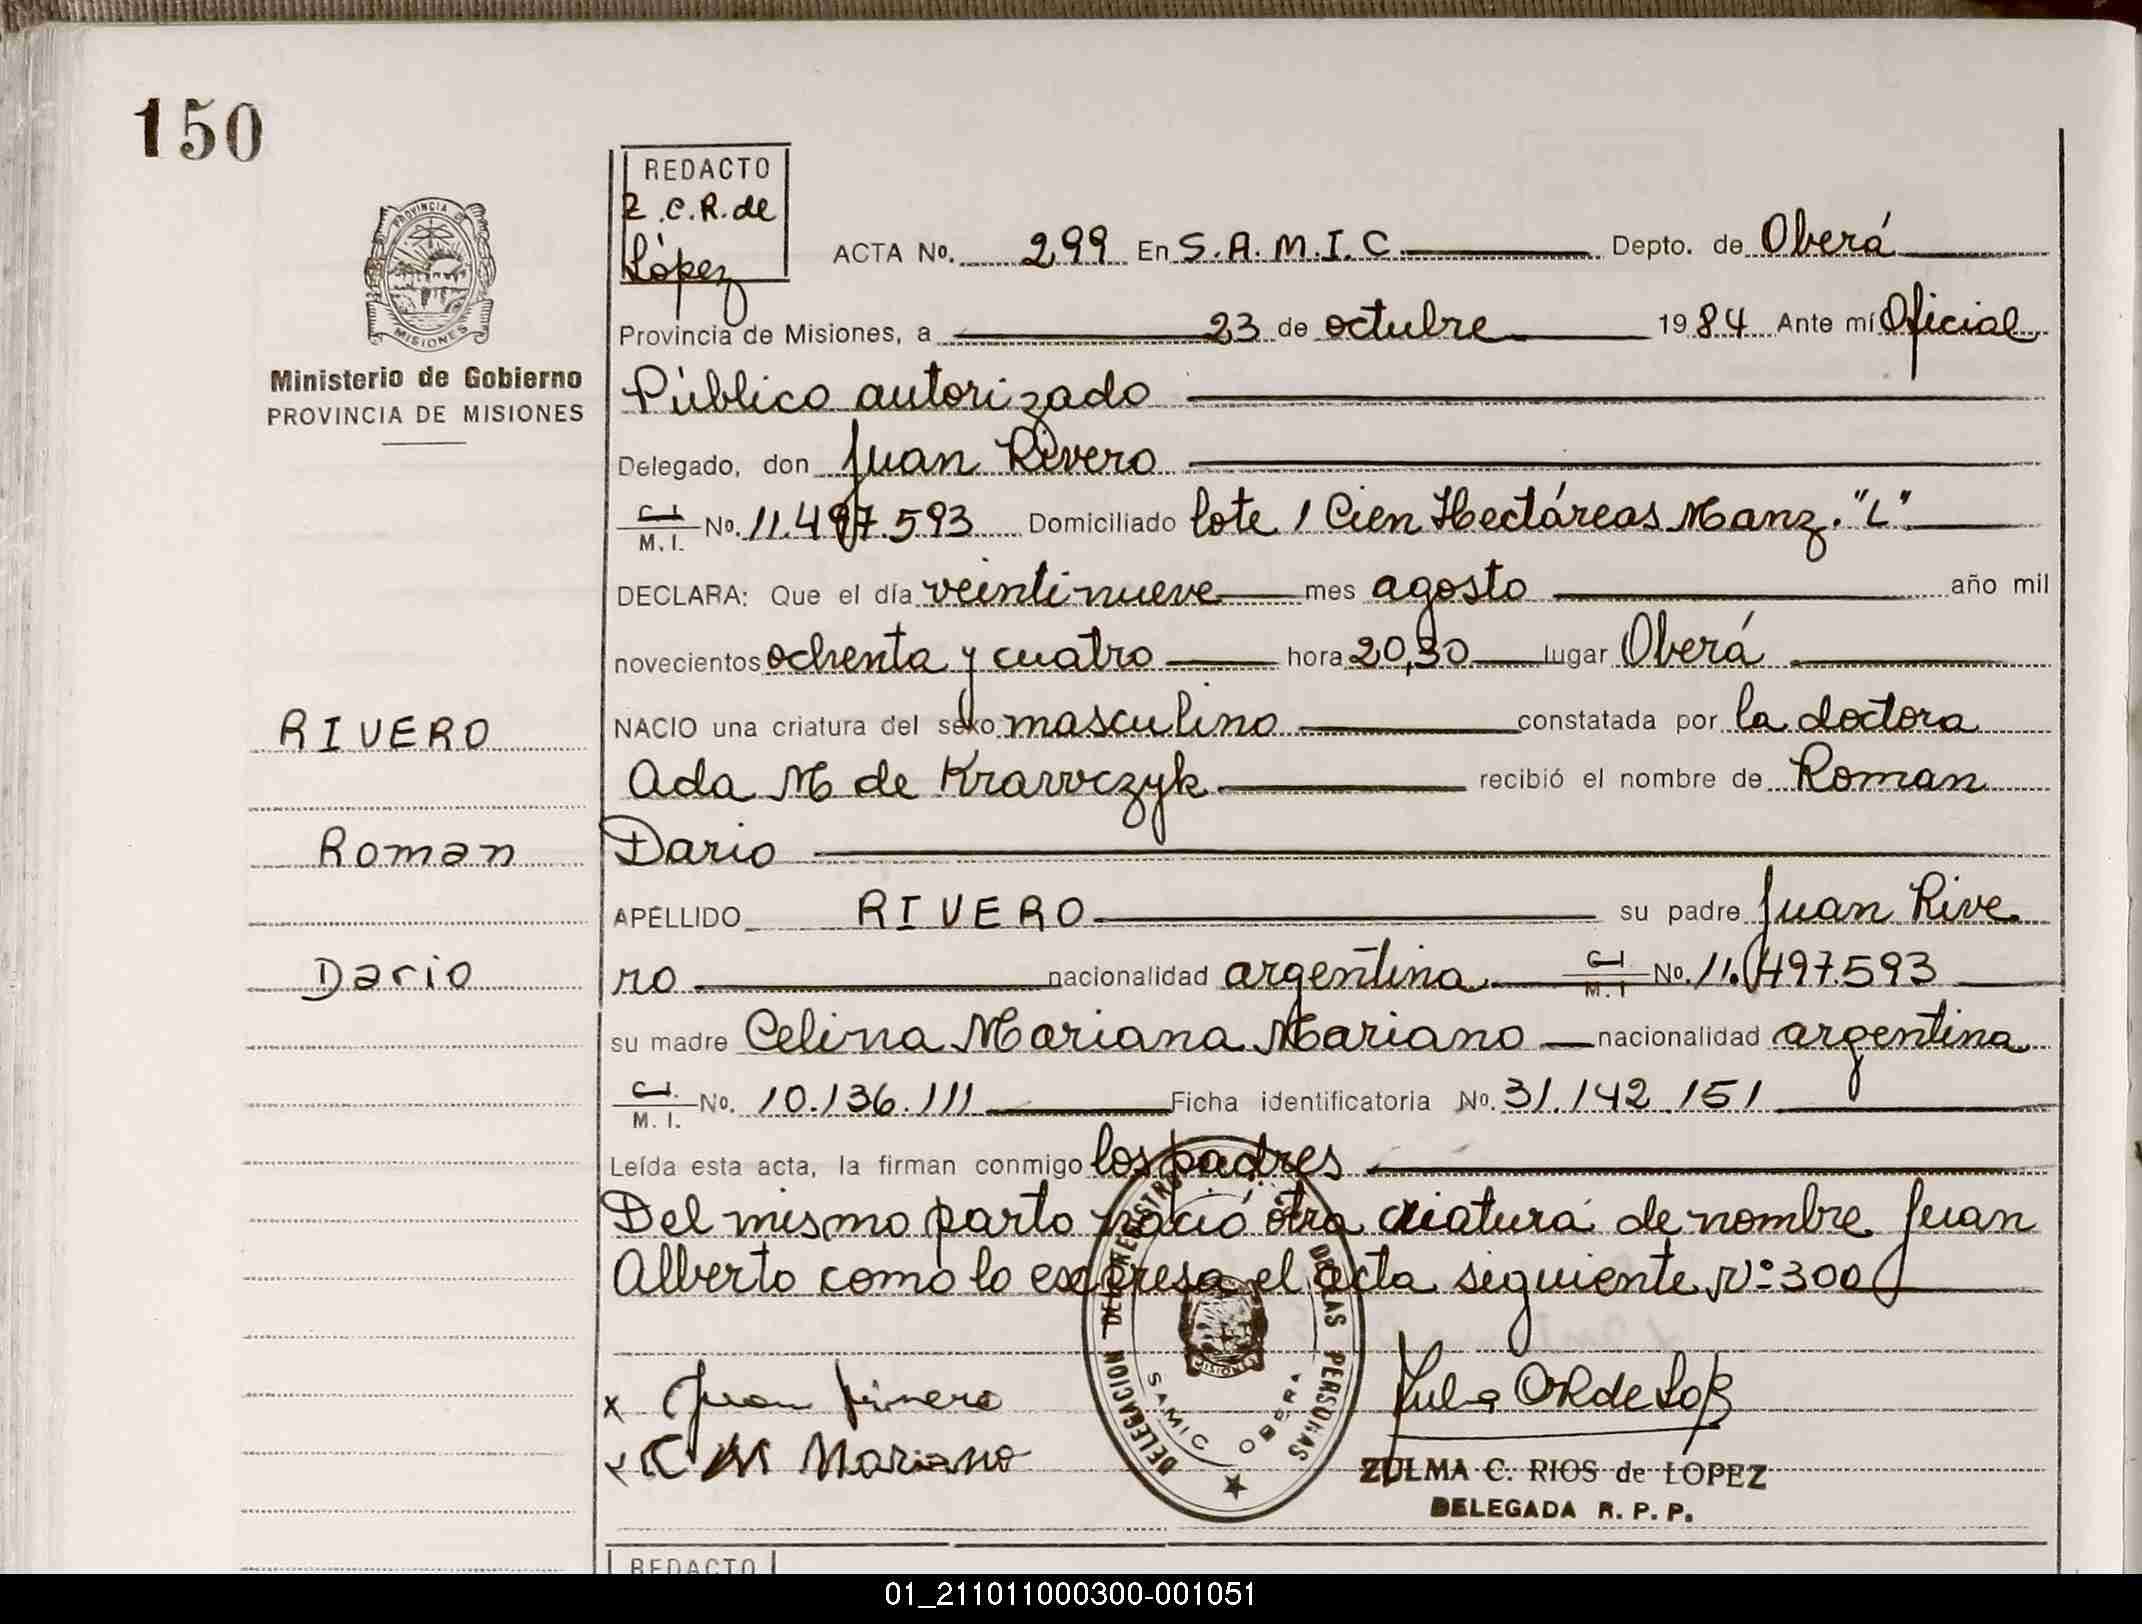 150
REDACTO
Z.C.R. de
López
PROVINCIA DE
MISIONES
Ministerio de Gobierno
PROVINCIA DE MISIONES
ACTA No. 299 En S.A.M.I.C. Depto. de Oberá
Provincia de Misiones, a 23 de octubre 1984 Ante mí Oficial
Público autorizado
Delegado, don Juan Rivero
C.I. M.I. No. 11.497.593 Domiciliado lote 1 Cien Hectáreas Manz. "L"
DECLARA: Que el día veintinueve mes agosto año mil
novecientos ochenta y cuatro hora 20,30 lugar Oberá
RIVERO
NACIO una criatura del sexo masculino constatada por la doctora
Ada M de Krawczyk recibió el nombre de Roman
Roman
Dario
APELLIDO RIVERO su padre Juan Rive
Dario
ro nacionalidad argentina C.I. M.I No. 11.497.593
su madre Celina Mariana Mariano nacionalidad argentina
C.I. M.I. No. 10.136.111 Ficha identificatoria No. 31.142.151
Leída esta acta, la firman conmigo los padres
Del mismo parto nació otra criatura de nombre Juan
Alberto como lo expresa el acta siguiente Nº 300
DELEGACION DEL REGISTRO DE LAS PERSONAS
MISIONES
SAMIC OBERA
x Juan Rivero
x C M Mariano
ZULMA C. RIOS de LOPEZ
DELEGADA R. P. P.
REDACTO
01_211011000300-001051